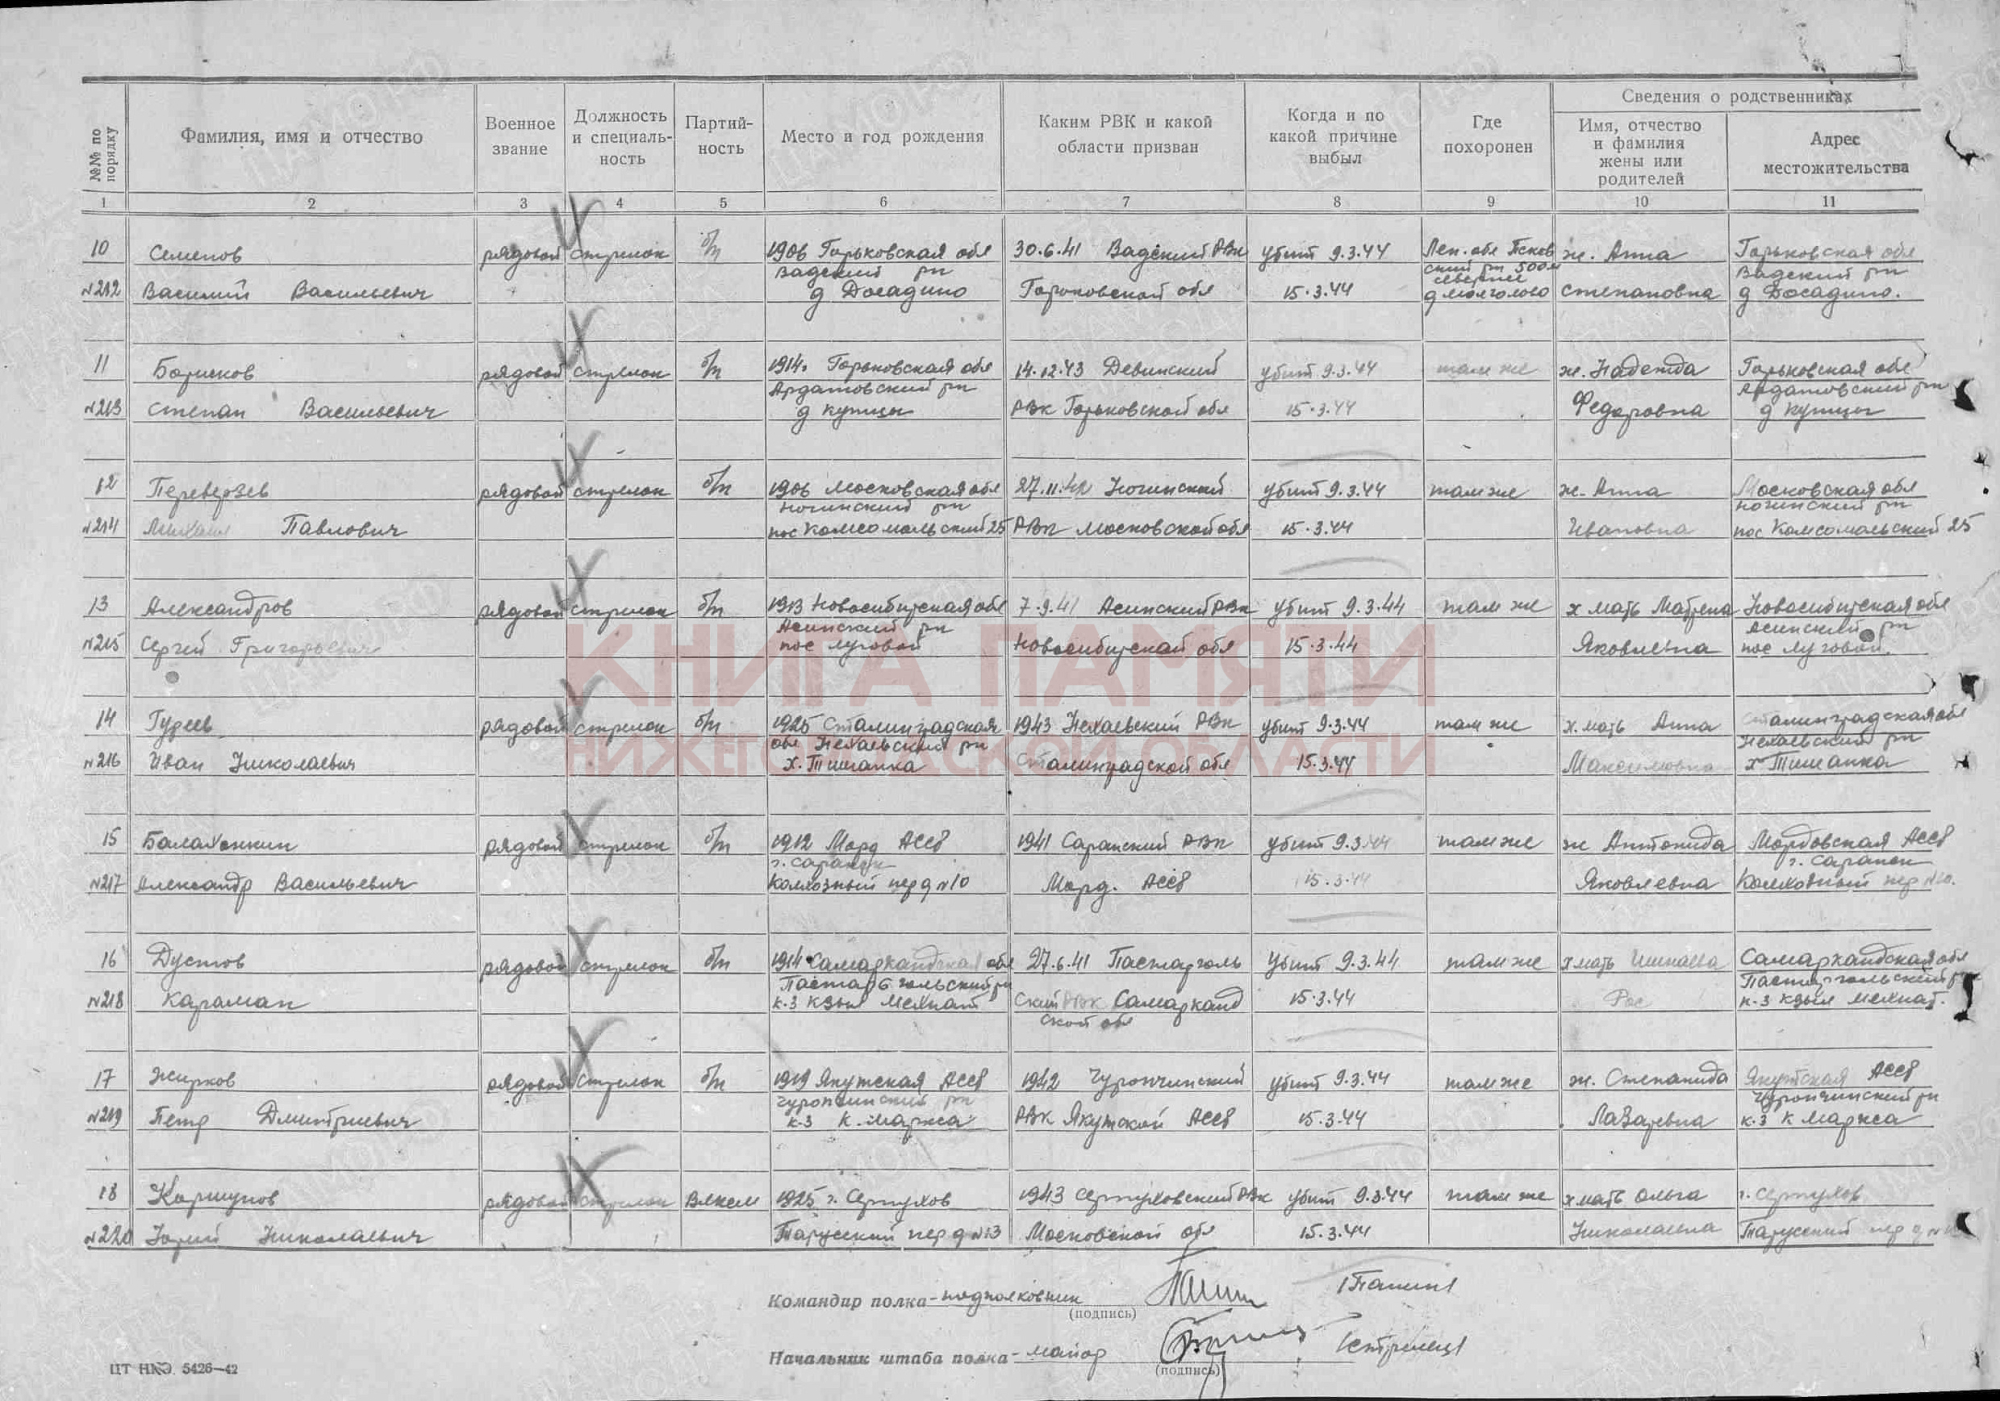 №№ по порядку
Фамилия, имя и отчество
Военное звание
Должность и специаль-ность
Партий-ность
Место и год рождения
Каким РВК и какой области призван
Когда и по какой причине выбыл
Где похоронен
Сведения о родственниках
Имя, отчество и фамилия жены или родителей
Адрес местожительства
1 2 3 4 5 6 7 8 9 10 11
10 Семенов рядовой стрелок б/п 1906 Горьковская обл 30.6.41 Вадский РВК убит 9.3.44 Лен. обл Псков ж. Анна Горьковская обл
Вадский рн ский рн 500 м севернее Вадский рн
№212 Василий Васильевич д Досадино Горьковской обл 15.3.44 Степановна д Досадино.
11 Борисков рядовой стрелок б/п 1914. Горьковская обл 14.12.43 убит 9.3.44 там же ж. Надежда Горьковская обл
Ардатовский рн Ардатовский рн
№213 Степан Васильевич д Купцы РВК Горьковской обл 15.3.44 Федоровна д Купцы
12 Переверзев рядовой стрелок б/п 1906 Московская обл 27.11.42 Ногинский убит 9.3.44 там же ж. Анна Московская обл
Ногинский рн Ногинский рн
№214 Михаил Павлович пос Комсомольский 25 РВК Московской обл 15.3.44 Ивановна пос Комсомольский 25
13 Александров рядовой стрелок б/п 1913 Новосибирская обл 7.9.41 Асинский РВК убит 9.3.44 там же х мать Матрена Новосибирская обл
Асинский рн Асинский рн
№215 Сергей Григорьевич пос Луговой Новосибирской обл 15.3.44 Яковлевна пос Луговой.
КНИГА ПАМЯТИ
14 Гузеев рядовой стрелок б/п 1925 Сталинградская 1943 Нехаевский РВК убит 9.3.44 там же х. мать Анна Сталинградская обл
обл Нехаевский рн Нехаевский рн
№216 Иван Николаевич х. Тишанка Сталинградской обл 15.3.44 Максимовна х Тишанка
НИЖЕГОРОДСКОЙ ОБЛАСТИ
15 Балахонкин рядовой стрелок б/п 1912 Морд АССР 1941 Саранский РВК убит 9.3.44 там же ж Антонида Мордовская АССР
г. Саранск г. Саранск
№217 Александр Васильевич Колхозный пер д №10 Морд. АССР 15.3.44 Яковлевна Колхозный пер №10.
16 Дустов рядовой стрелок б/п 1914 Самаркандская обл 27.6.41 убит 9.3.44 там же х мать Самаркандская обл
№218 Караман к-з Кзыл Мехнат ский РВК Самарканд 15.3.44 к-з Кзыл Мехнат.
ской обл
17 Жирков рядовой стрелок б/п 1919 Якутская АССР 1942 Чурапчинский убит 9.3.44 там же ж. Степанида Якутская АССР
Чурапчинский рн Чурапчинский рн
№219 Петр Дмитриевич к-з К. Маркса РВК Якутской АССР 15.3.44 Лазаревна к-з К Маркса
18 Коршунов рядовой стрелок Влксм 1925 г. Серпухов 1943 Серпуховский РВК убит 9.3.44 там же х мать Ольга г. Серпухов
№220 Юрий Николаевич Тарусский пер д №13 Московской обл 15.3.44 Николаевна Тарусский пер д №
Командир полка - подполковник /Панин/
(подпись)
Начальник штаба полка - майор /Стрелец/
(подпись)
ЦТ НКЭ. 5426—42